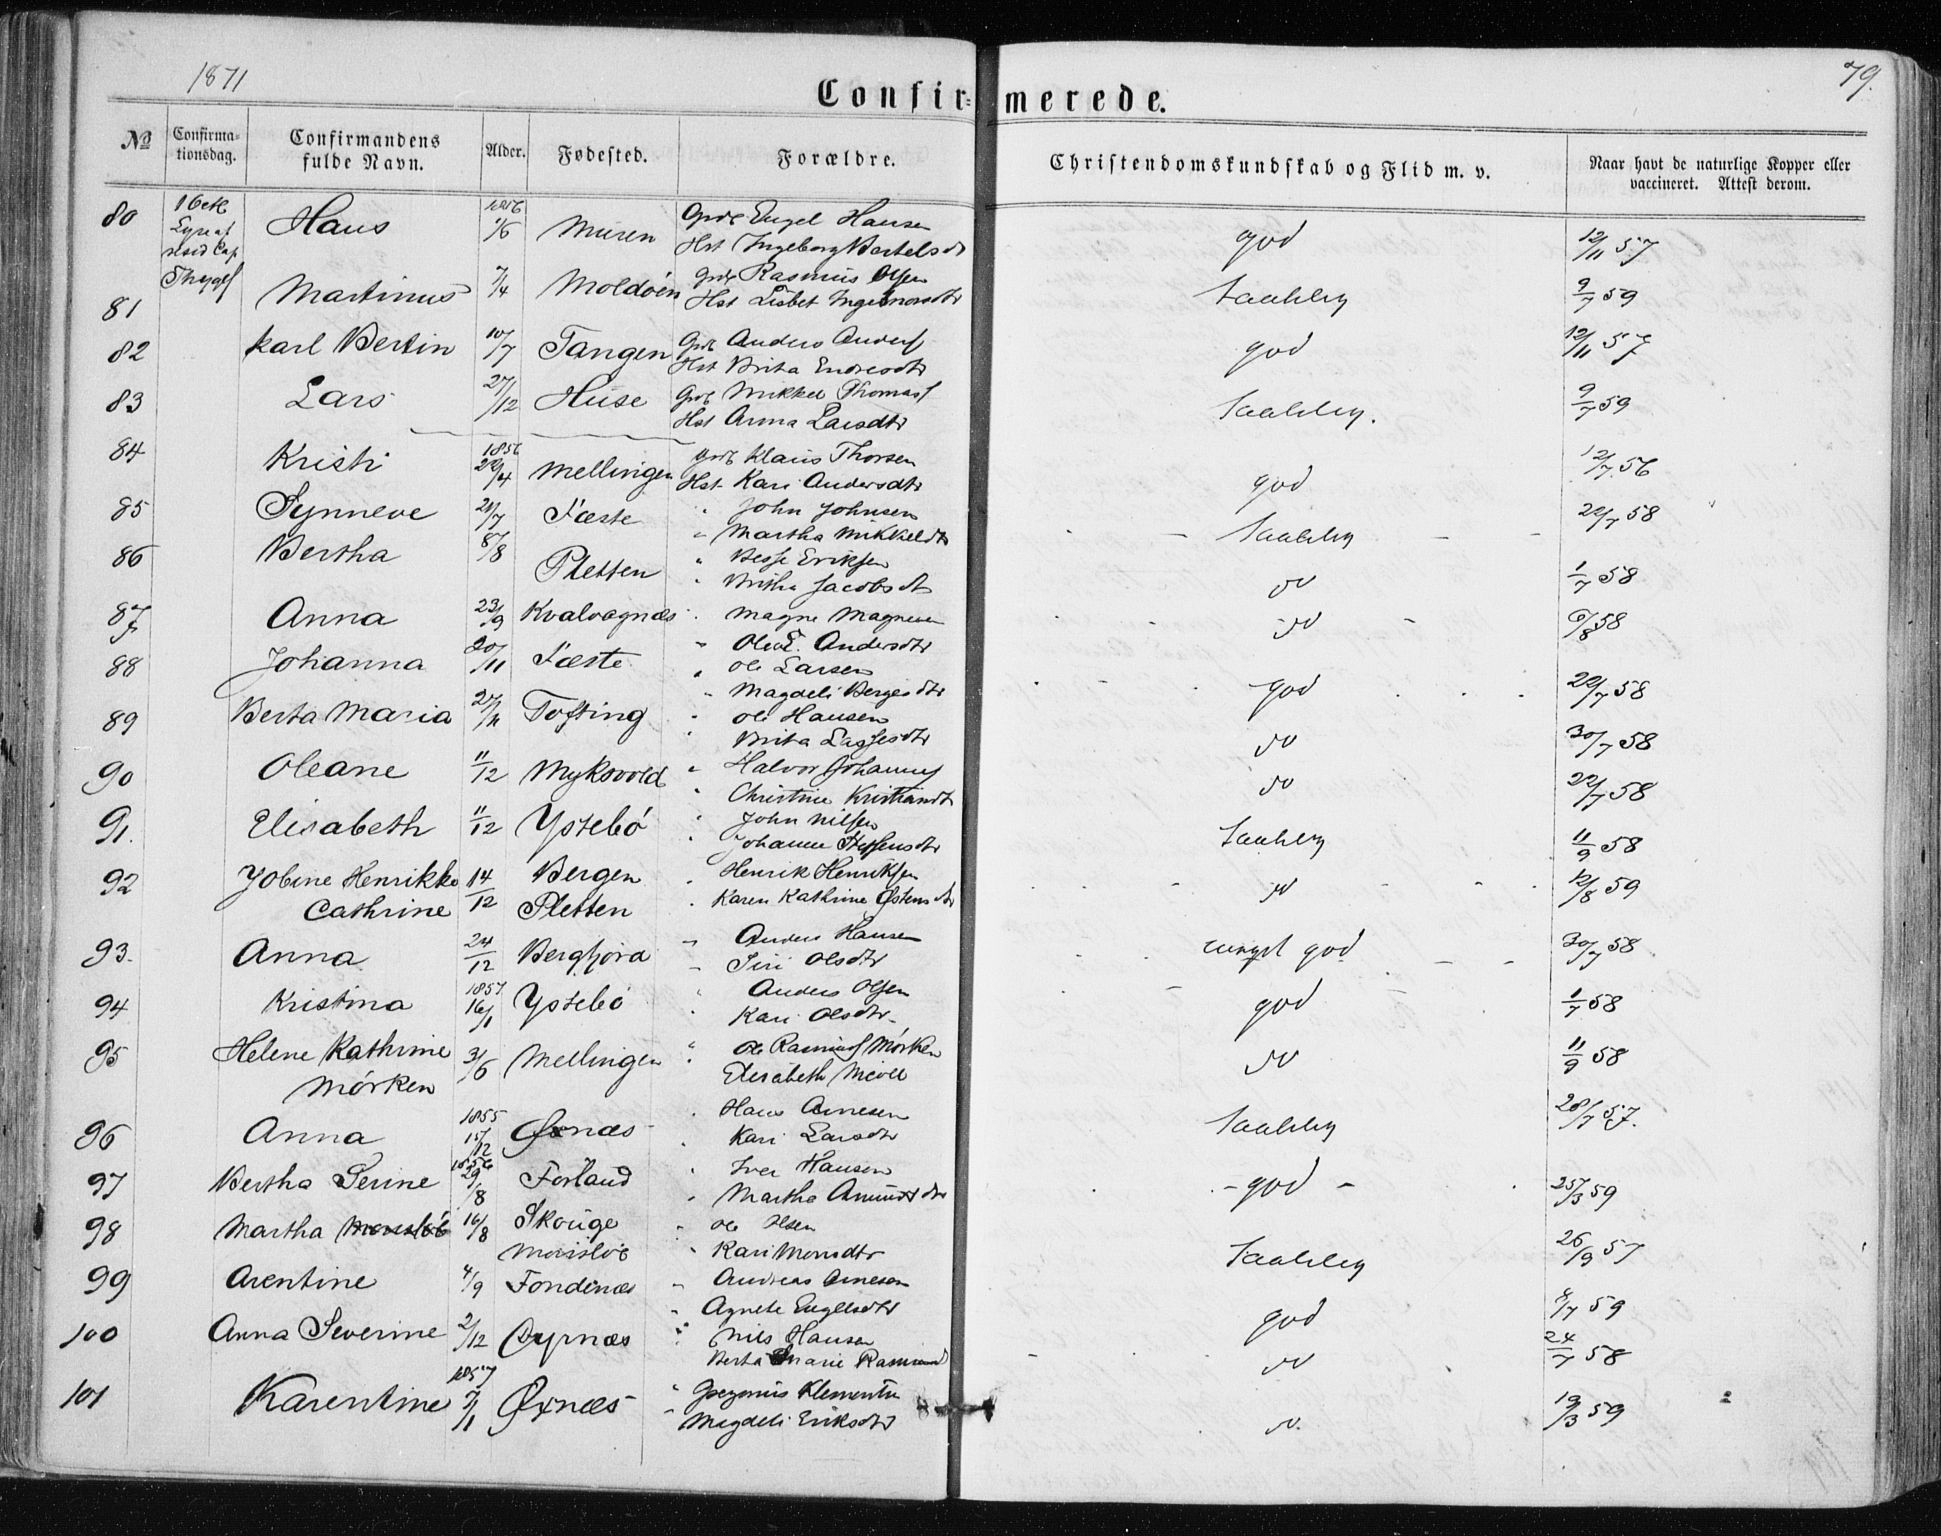 1871
79.
Confir=merede.
No
Confirma-
tionsdag.
Confirmandens
fulde Navn.
Alder.
Fødested.
Forældre.
Christendomskundskab og Flid m. v.
Naar havt de naturlige Kopper eller
vaccineret. Attest derom.
80 Hans 1856 1/6 Muren Grd Engel Hansen god 12/11 57
Hst Ingeborg Bertelsdt
81 Martinus 7/4 Moldöen Grd Rasmus Olsen Taalelig 9/7 59
Hst Lisbet Ingemorsdtr
82 Karl Bertin 10/7 Tangen Grd Anders Anders god 12/11 57
Hst Brita Endresdtr
83 Lars 27/12 Huse Grd Mikkel Thomas Taalelig. 9/7 59
Hst Anna Larsdtr
84 Kristi 1856 Mellingen Grd Klaus Thorsen god 12/7 56
Hst Kari Andersdtr
85 Synneve Fæste " John Johnsen Taalelig 22/7 58
" Martha Mikkelsdtr
86 Bertha Pletten " Besse Eriksen do 1/7 58
" Britha Jacobsdt
87 Anna 23/9 Kvalvagnæs " Magne Magnesen do 6/8 58
" Andersdtr
88 Johanna 20/11 Fæste " Ole Larsen god 22/7 58
" Magdeli Bergesdtr
89 Berta Maria 27/11 Tofting " Ole Hansen do 30/7 58
" Brita Lassesdtr
90 Oleane 11/12 Myksvold " Halvor Johannes do 22/7 58
" Christine Kristiansdt
91. Elisabeth 11/12 Ystebö " John Nilsen Taalelig 11/9 58
" Johanne Steffensdtr
92 Jobine Henrikke 14/12 Bergen " Henrik Henriksen do 12/8 59
Cathrine Pletten " Karen Kathrine Østensdtr
93. Anna 24/12 Bergfjord " Anders Hansen god 30/7 58
" Siri Olsdtr
94 Kristina 1857 16/1 Ystebö " Anders Olsen god 1/7 58
" Kari Olsdtr
95 Helene Kathrine 3/6 Mellingen " Ole Rasmus Mörken do 11/9 58
Mörken Elisabeth
96 Anna 1855 15/12 Øxnæs " Hans Arnesen Taalelig 28/7 57.
" Kari Larsdtr
97 Bertha Serine 1856 29/8 Forland " Iver Hansen - god - 25/3 59
" Martha Amundsdtr
98 Martha 16/8 Skouge " Ole Olsen Taalelig 26/9 57
" Kari Monsdtr
99 Arentine 4/9 Fondenæs " Andreas Arnesen god 8/7 59
" Agnete Engelsdtr
100 Anna Severine 2/12 Dyrnæs " Nils Hansen do 24/7 58
Berta Marie
101 Karentine 1857 7/1 Øxnæs " Gregorius do. 19/3 59
" Magdeli Eriksdtr